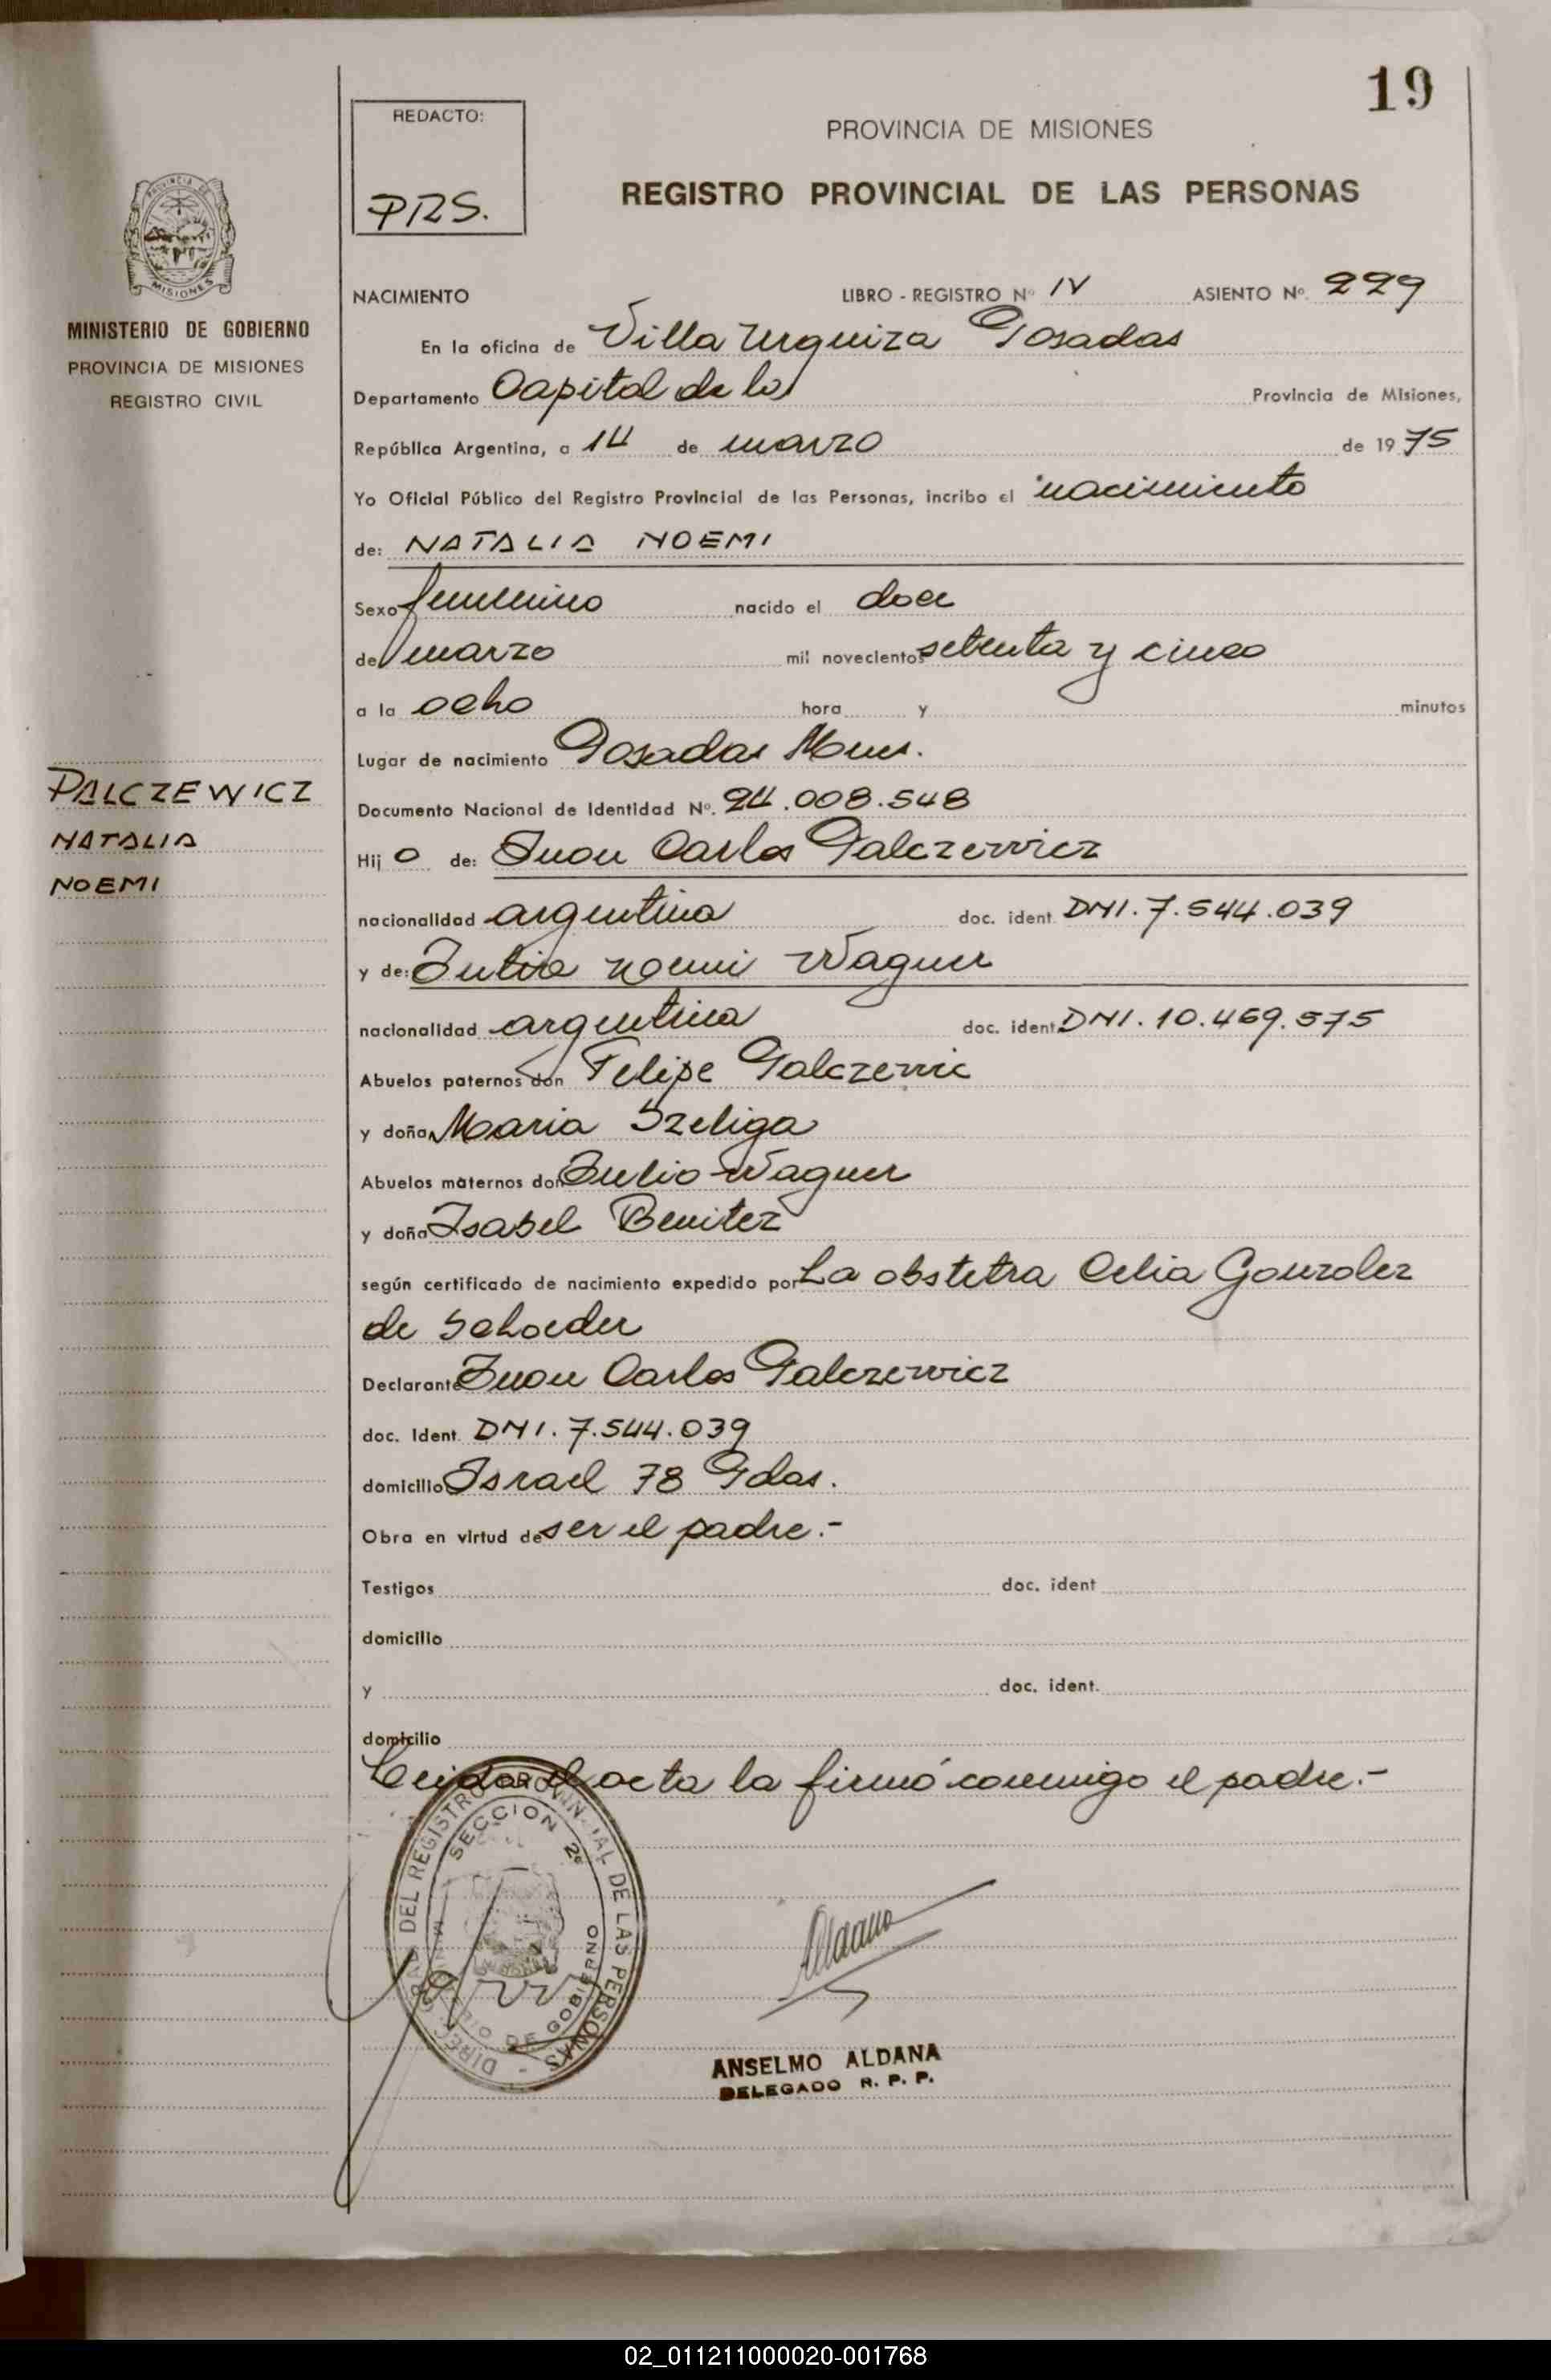 19
REDACTO:
PRS.
PROVINCIA DE MISIONES
REGISTRO PROVINCIAL DE LAS PERSONAS
PROVINCIA DE
MISIONES
MINISTERIO DE GOBIERNO
PROVINCIA DE MISIONES
REGISTRO CIVIL
NACIMIENTO LIBRO - REGISTRO Nº IV ASIENTO Nº. 229
En la oficina de Villa Urquiza Posadas
Departamento Capital de la Provincia de Misiones,
República Argentina, a 14 de marzo de 1975
Yo Oficial Público del Registro Provincial de las Personas, incribo el nacimiento
de: NATALIA NOEMI
Sexo femenino nacido el doce
de marzo mil novecientos setenta y cinco
a la ocho hora y minutos
Lugar de nacimiento Posadas Mnes.
PALCZEWICZ
NATALIA
NOEMI
Documento Nacional de Identidad Nº. 24.008.548
Hij o de: Juan Carlos Palczewicz
nacionalidad argentina doc. ident. DNI. 7.544.039
y de: Julia noemi Wagner
nacionalidad argentina doc. ident. DNI. 10.469.575
Abuelos paternos don Felipe Palczewic
y doña Maria Szeliga
Abuelos maternos don Julio Wagner
y doña Isabel Benitez
según certificado de nacimiento expedido por La obstetra Celia Gonzalez
de Schoeder
Declarante Juan Carlos Palczewicz
doc. Ident. DNI. 7.544.039
domicilio Israel 78 Pdas.
Obra en virtud de ser el padre.-
Testigos doc. ident
domicilio
y doc. ident.
domicilio
Leida el acta la firmó conmigo el padre.-
DIREC. GRAL DEL REGISTRO PROVINCIAL DE LAS PERSONAS -
SECCION 2ª
MINISTERIO DE GOBIERNO
Aldana
ANSELMO ALDANA
DELEGADO R. P. P.
02_011211000020-001768